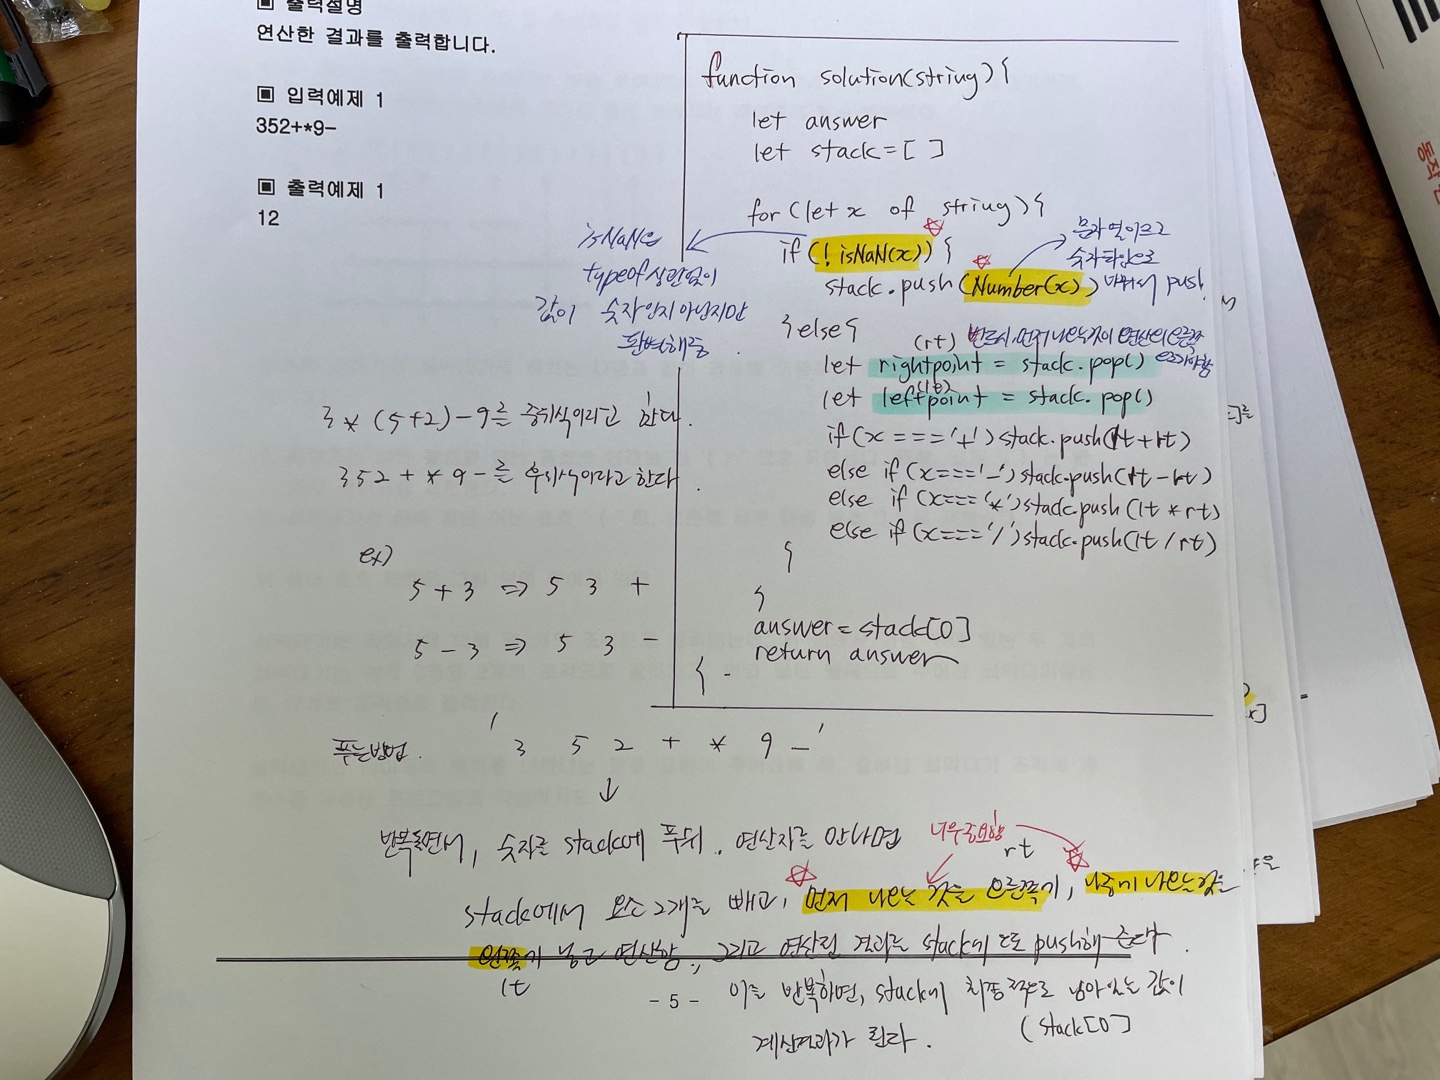 ▣ 출력설명
연산한 결과를 출력합니다.
▣ 입력예제 1
352+*9-
▣ 출력예제 1
12
function solution(string){
let answer
let stack=[ ]
for(let x of string){
if(!isNaN(x)){
stack.push(Number(x))
문자열이므로
숫자타입으로
바꿔서 push
isNaN은
typeof 상관없이
값이 숫자인지 아닌지만
판별해줌.
}else{
(rt) 반드시 먼저 나오는것이 연산의 오른쪽
let rightpoint = stack.pop()
(lt)
let leftpoint = stack.pop()
if(x==='+')stack.push(lt+rt)
else if(x==='-')stack.push(lt-rt)
else if(x==='*')stack.push(lt*rt)
else if(x==='/')stack.push(lt/rt)
}
}
answer=stack[0]
return answer
}
3*(5+2)-9를 중위식이라고 한다.
352+*9-를 후위식이라고 한다.
ex)
5+3 => 5 3 +
5-3 => 5 3 -
푸는방법. ' 3 5 2 + * 9 - '
↓
반복돌면서, 숫자를 stack에 푸쉬. 연산자를 만나면
너무중요함
rt
stack에서 요소 2개를 빼고, 먼저 나오는 것을 오른쪽기, 나중에 나오는것을
왼쪽기 넣고 연산함. 그리고 연산된 결과를 stack에 또 push해 준다.
lt
이를 반복하면, stack에 최종적으로 남아있는 값이
(stack[0])
계산결과가 된다.
- 5 -